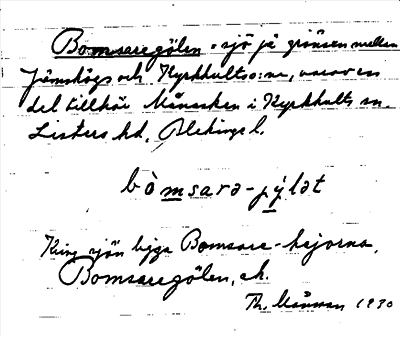 Bomsaregölen = sjö på gränsen mellan
Jämshögs och Kyrkhults s:nr, varav en
del tillhör Månasken i Kyrkhults sn.
Listers hd, Blekinge l.
bòmsarə-jýlət
Kring sjön ligga Bomsare-hejorna,
Bomsaregölen, ek.
Th. Månsson 1930